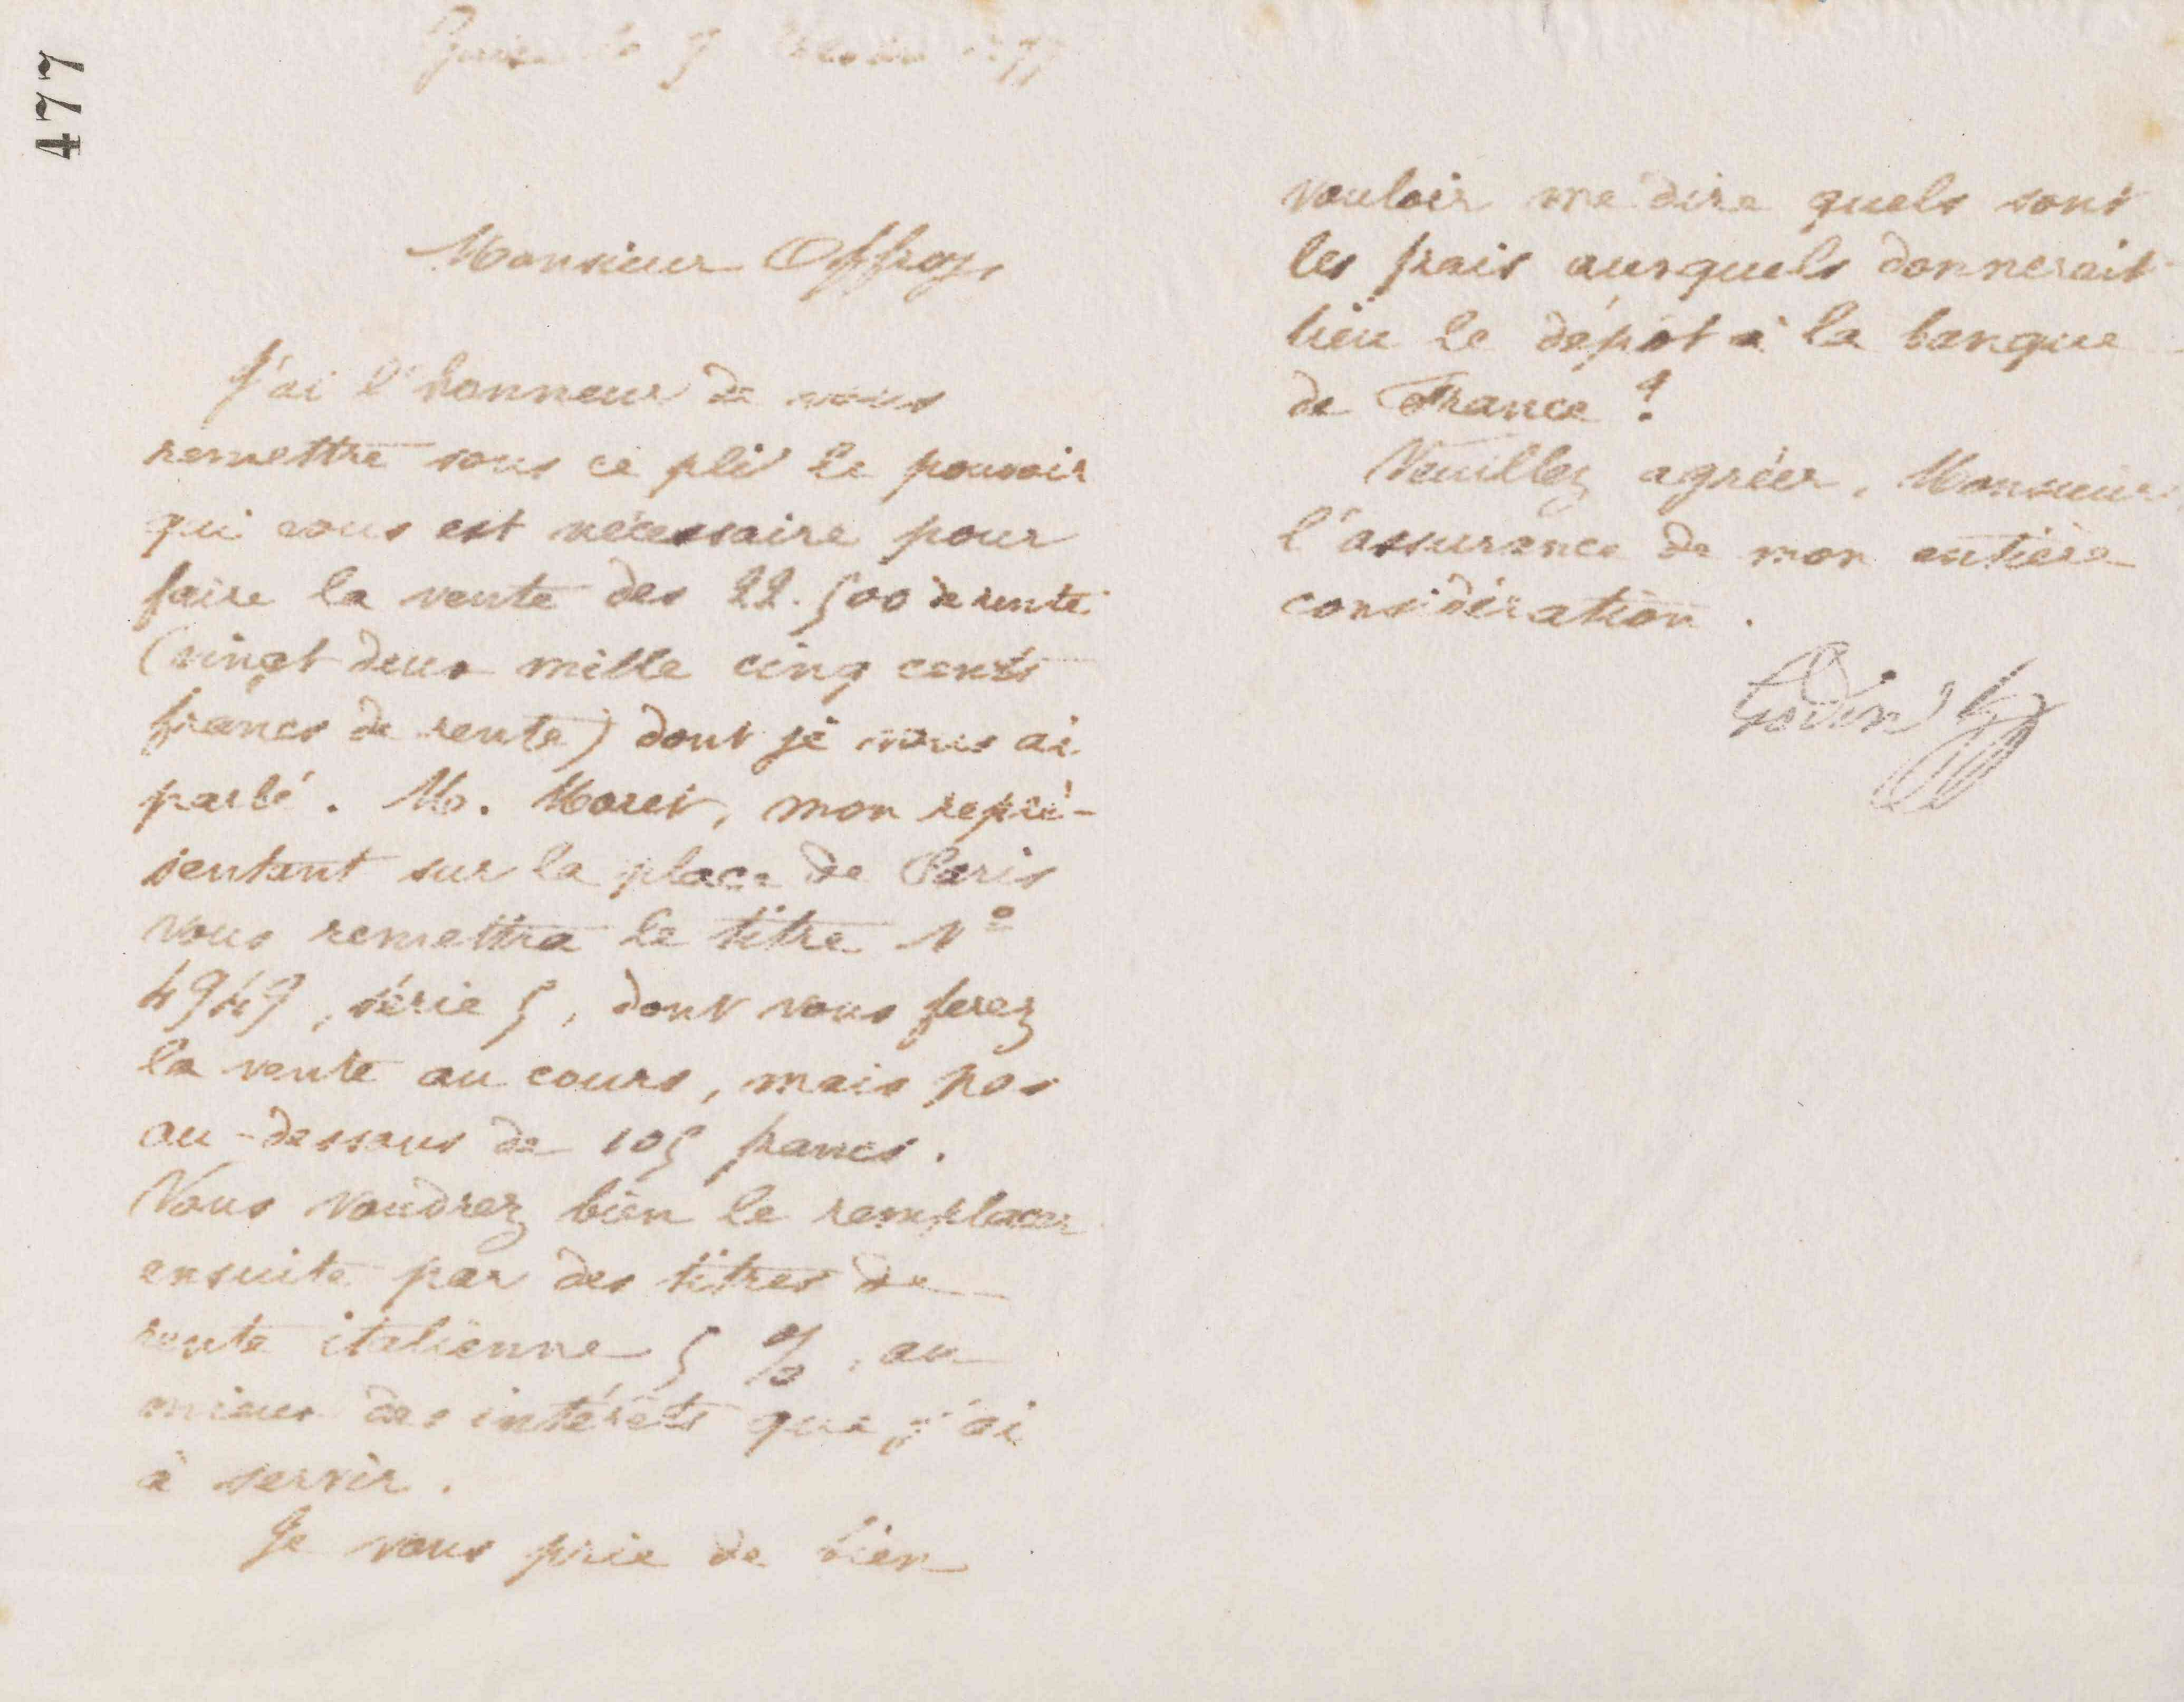 477
Guise le
Monsieur Offroy,
J'ai l'honneur de vous
remettre sous ce pli le pouvoir
qui vous est nécessaire pour
faire la vente des 22.500 de rente
(vingt deux mille cinq cents
francs de rente) dont je vous ai
parlé. M. Moret, mon repré-
sentant sur la place de Paris
vous remettra le titre Nº
4949, série 5, dont vous ferez
la vente au cours, mais pas
au-dessous de 105 francs.
Vous voudrez bien le remplacer
ensuite par des titres de
rente italienne 5 %, au
mieux des intérêts que j'ai
à servir.
Je vous prie de bien
vouloir me dire quels sont
les frais auxquels donnerait
lieu le dépôt à la banque
de France ?
Veuillez agréer, Monsieur
l'assurance de mon entière
considération.
Godin